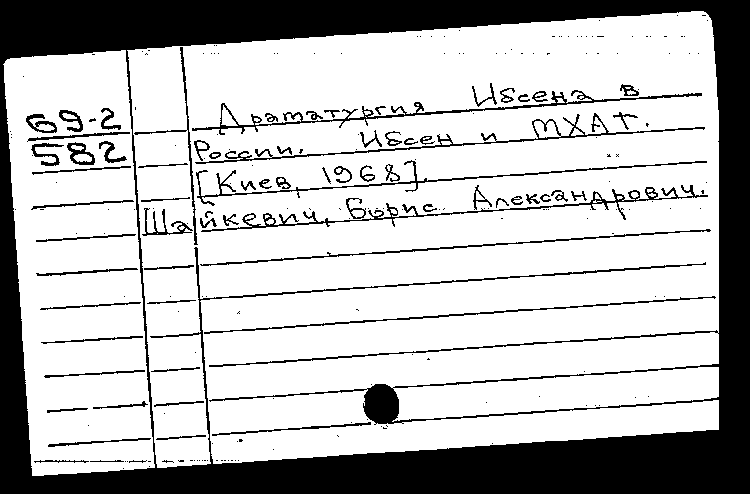 69-2
582
Драматургия Ибсена в
России. Ибсен и МХАТ.
[Киев, 1968].
Шайкевич, Борис Александрович.